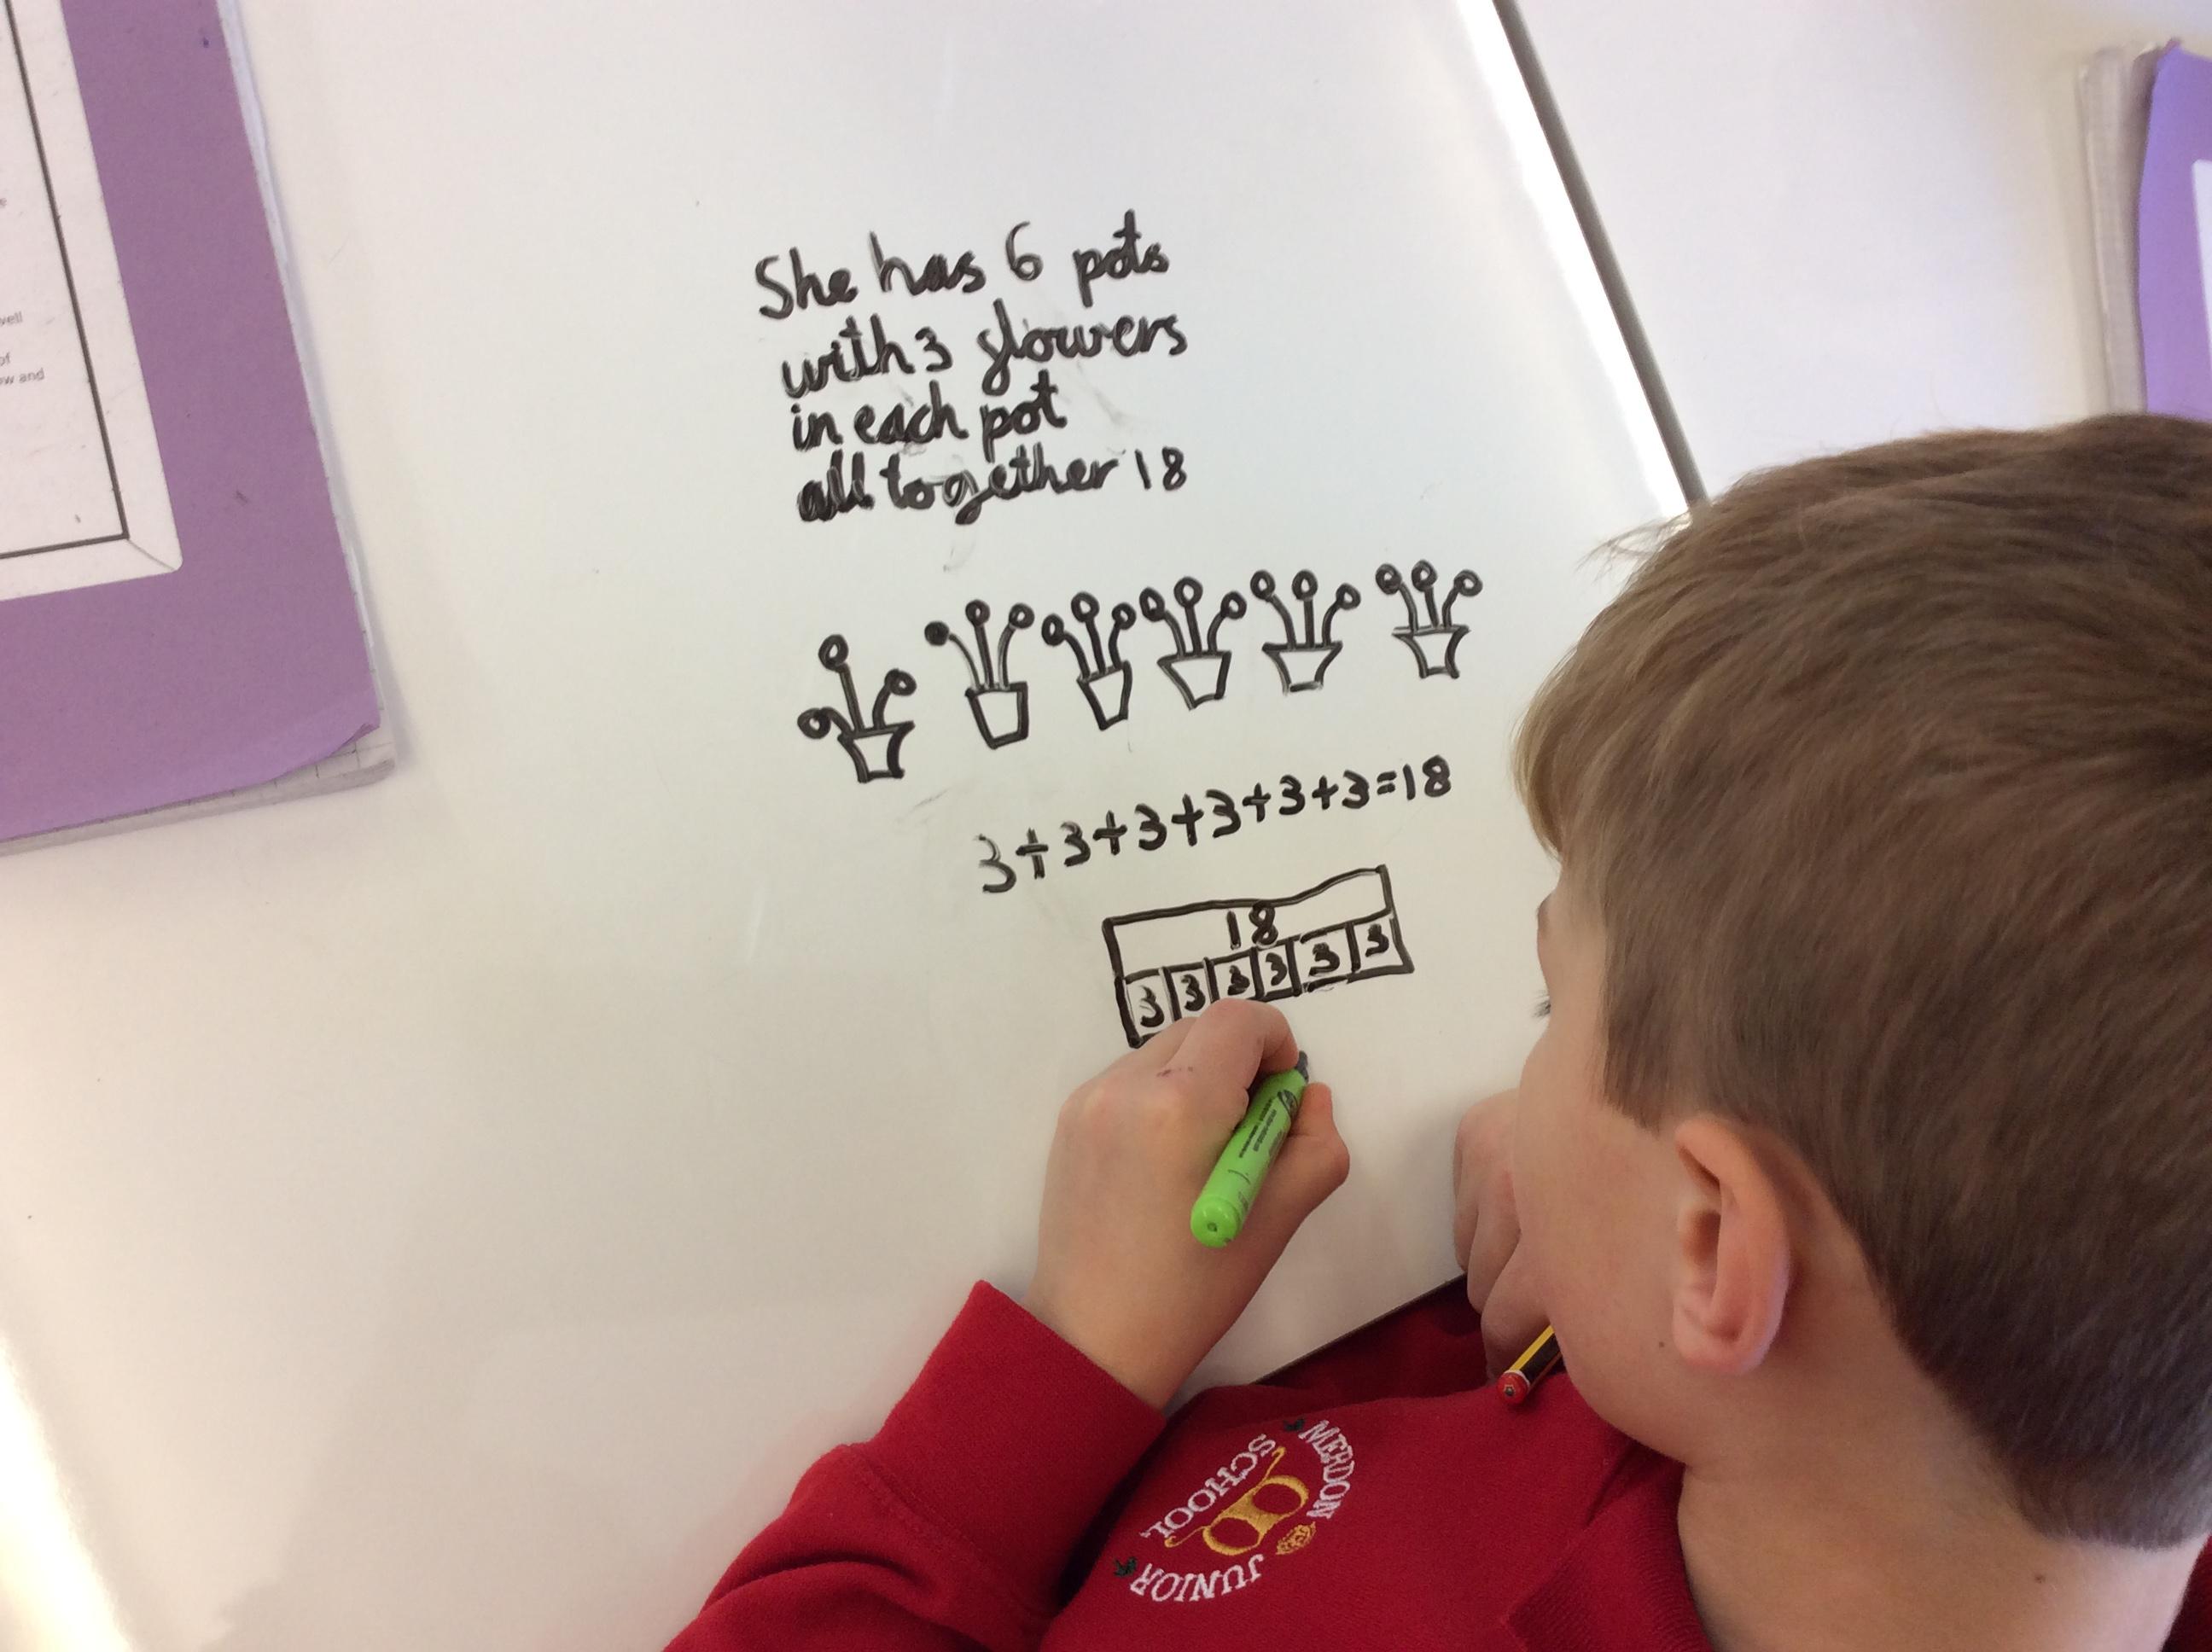 She has 6 pots
with 3 flowers
in each pot
all together 18
3+3+3+3+3+3=18
18
3 3 3 3 3 3
MERDON
JUNIOR
SCHOOL
well
of
ow and